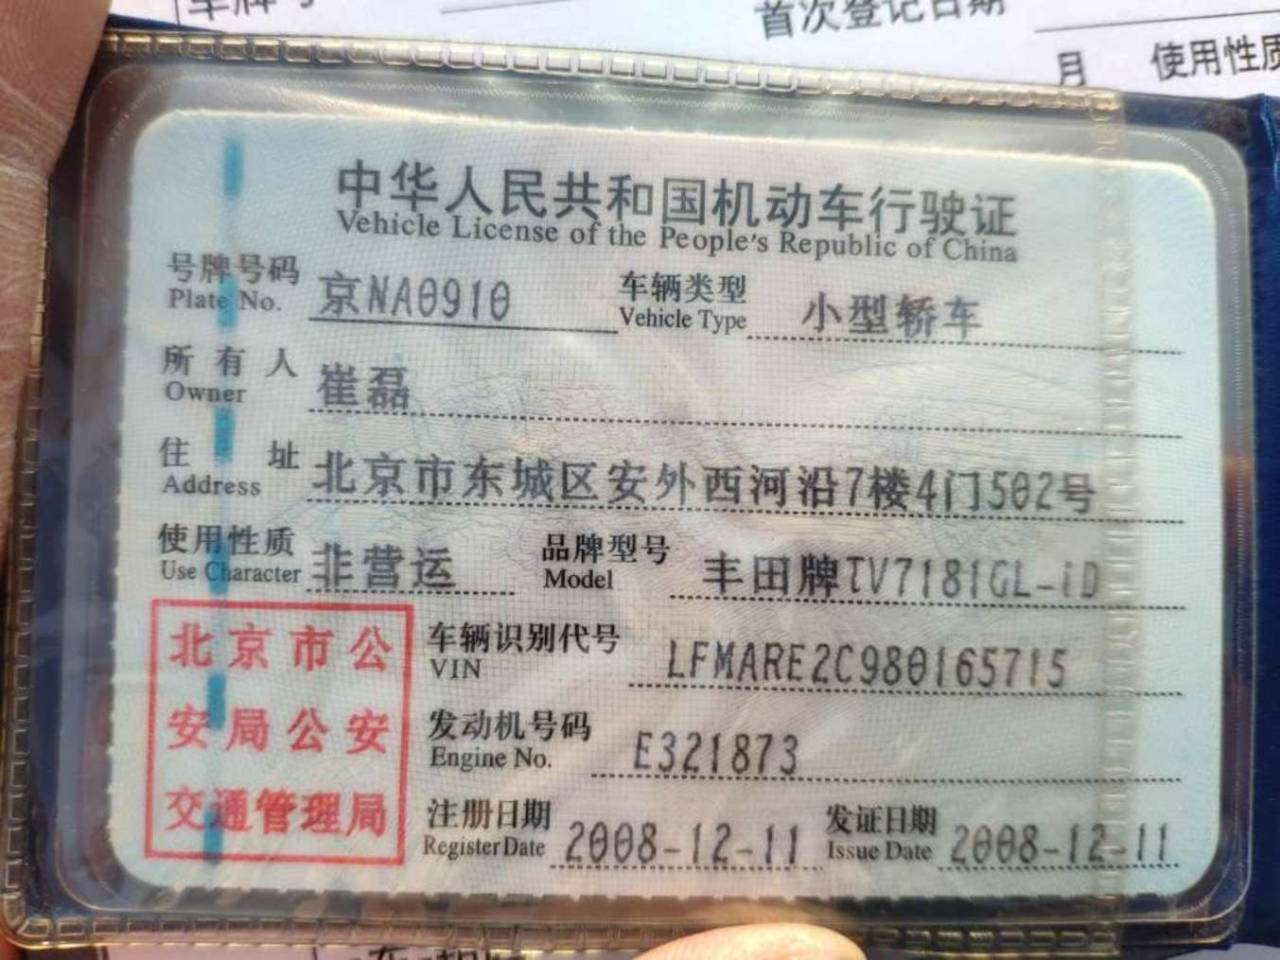 车牌号
首次登记日期
月 使用性质
中华人民共和国机动车行驶证
Vehicle License of the People's Republic of China
号牌号码 京NA0910 车辆类型 小型轿车
Plate No. Vehicle Type
所有人 崔磊
Owner
住址 北京市东城区安外西河沿7楼4门502号
Address
使用性质 非营运 品牌型号 丰田牌TV7181GL-iD
Use Character Model
北京市公
安局公安
交通管理局
车辆识别代号 LFMARE2C980165715
VIN
发动机号码 E321873
Engine No.
注册日期 2008-12-11 发证日期 2008-12-11
Register Date Issue Date